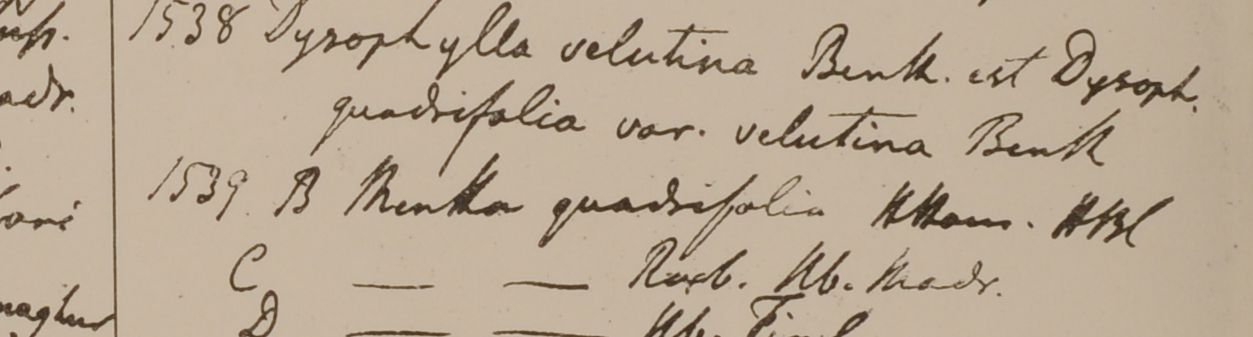 1538 Dysophylla velutina Benth. est Dysoph.
quadrifolia var. velutina Benth
1539. B Mentha quadrifolia HHam. HBC
C — — Roxb. Hb. Madr.
D — — Hb. Finl
adr.